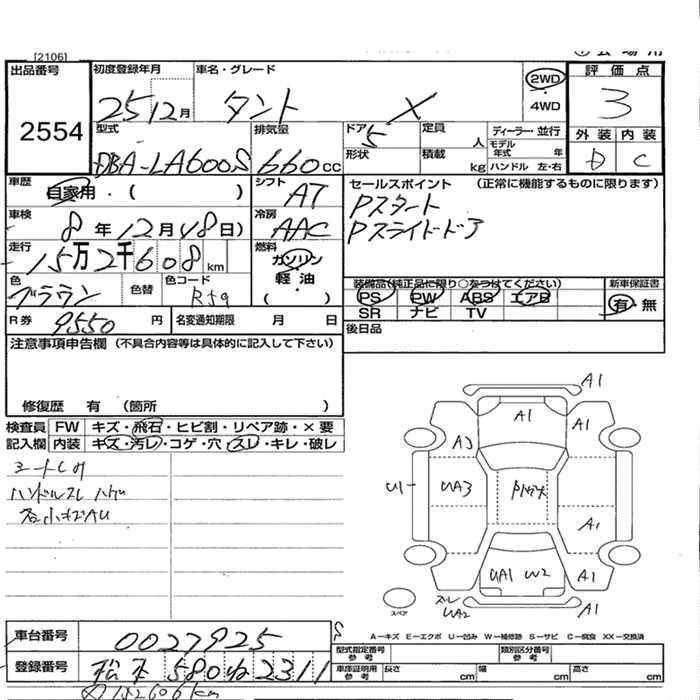 [2106]
出品番号
2554
初度登録年月
25 12月
車名・グレード
タント X
2WD
・
4WD
評価点
3
外装 内装
D C
型式
DBA-LA600S
排気量
660cc
ドア 5
形状
定員 人
積載 kg
ディーラー・並行
モデル年式 年
ハンドル 左・右
車歴
自家用・( )
シフト
AT
車検
8年12月18日)
冷房
AAC
走行
15万2千608km
燃料
ガソリン
・
軽油
( )
色
ブラウン
色替
色コード
R59
セールスポイント (正常に機能するものに限ります)
Pスタート
Pスライドドア
装備品(純正品に限り○をつけてください)
PS PW ABS エアB
SR ナビ TV
新車保証書
有・無
R券 9550円
名変通知期限 月 日
後日品
注意事項申告欄 (不具合内容等は具体的に記入して下さい)
修復歴 有 (箇所 )
検査員記入欄
FW キズ・飛石・ヒビ割・リペア跡・×要
内装 キズ・汚レ・コゲ・穴・スレ・キレ・破レ
シートしみ
ハンドルスレ ハゲ
各小キズAU
A1
A1
A1
A3
U1
UA3
A1
UA1 W2
A1
スレ
UA2
A1
スペア
A-キズ E-エクボ U-凹み W-補修跡 S-サビ C-腐食 XX-交換済
車台番号
0027925
登録番号
松本 580 ね 2311
型式指定番号
参考
類別区分番号
参考
車庫証明用
参考
長さ cm
幅 cm
高さ cm
152606km